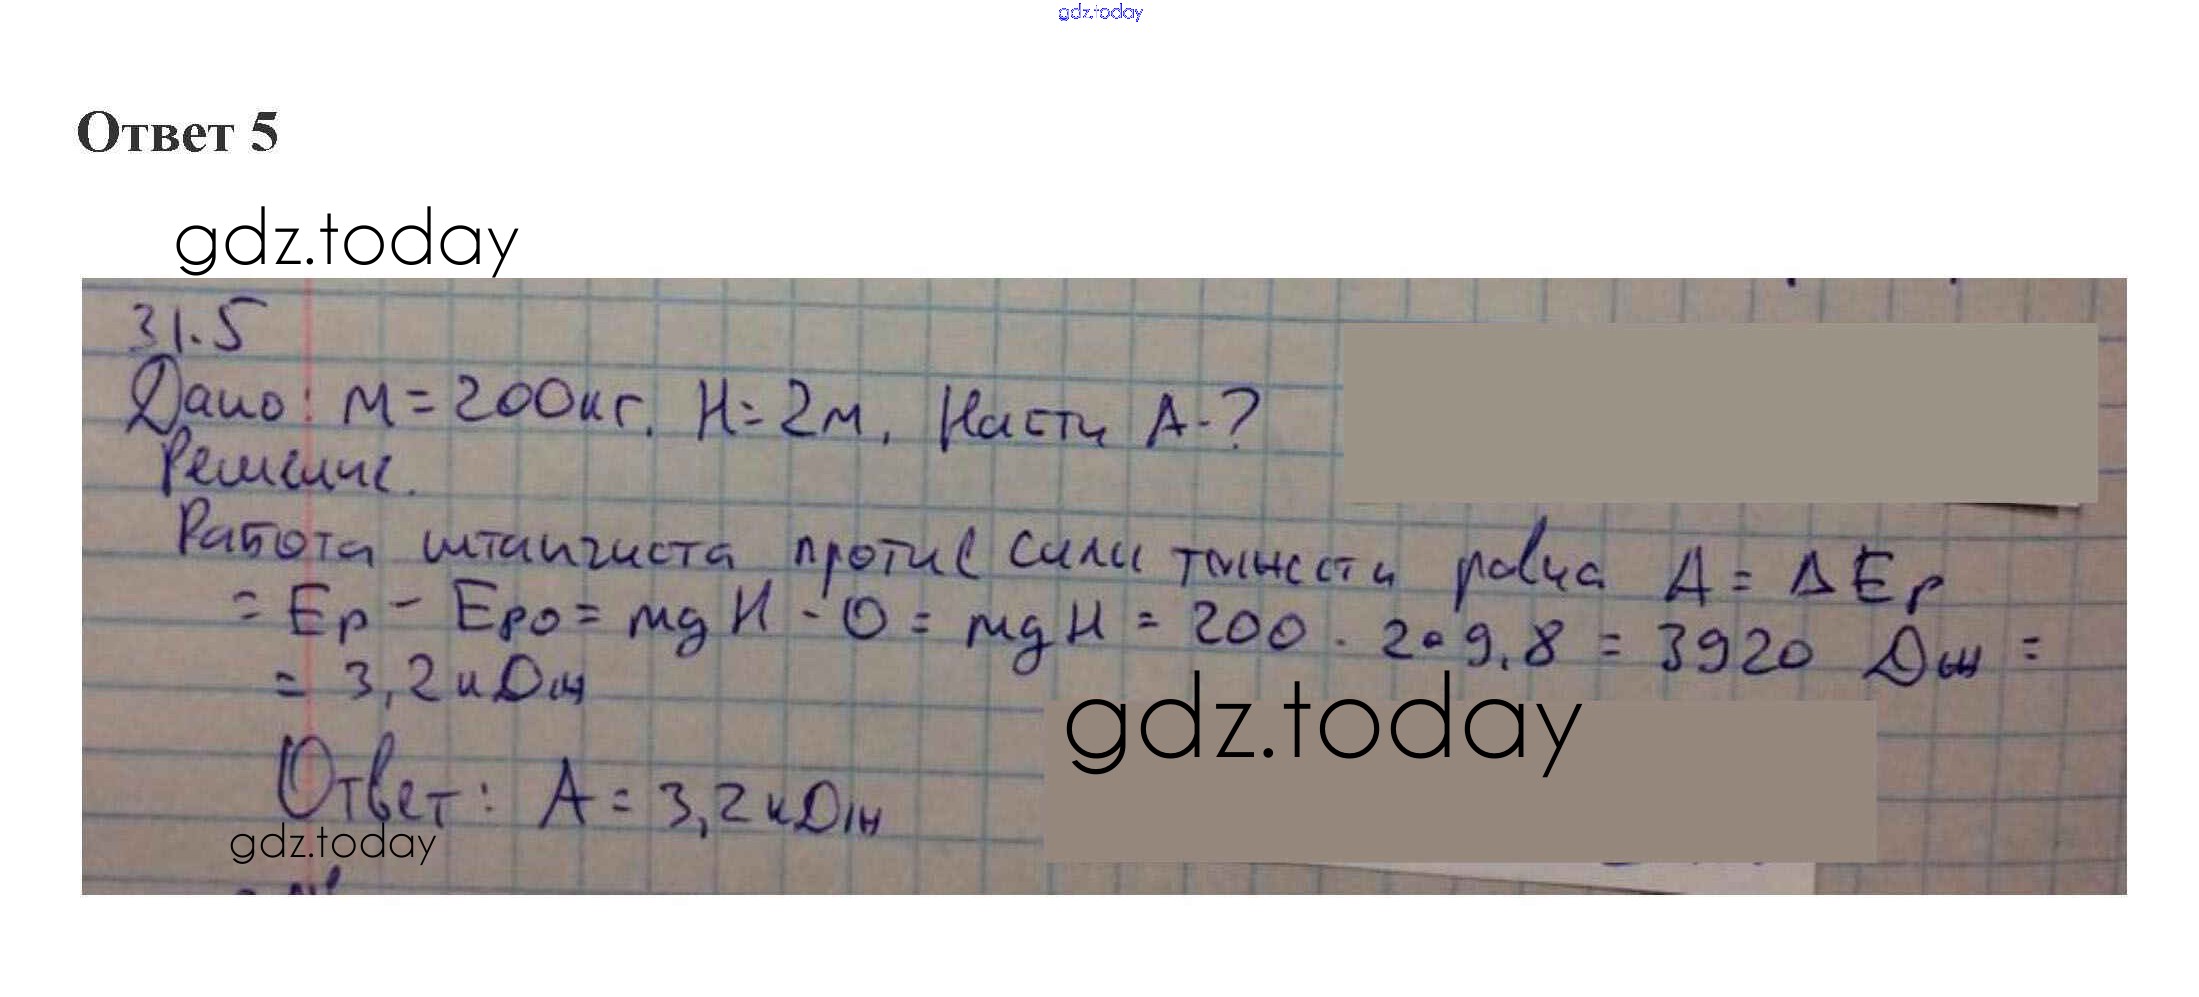 gdz.today
Ответ 5
gdz.today
31.5
Дано: м = 200кг. H = 2м. Насти А-?
Решение.
Работа штангиста против силы тяжести равна A = ΔEp
= Ep - Epo = mgH - 0 = mgH = 200 · 2 · 9,8 = 3920 Дж =
= 3,2 кДж
gdz.today
Ответ: A = 3,2 кДж
gdz.today